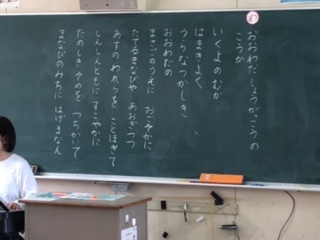 おおわだしょうがっこうの
こうか
いくよのむか
はまきよく
うらなつかしき
おおわだの
まさごのうえに おごやかに
たてるまなびや あおぎつつ
あすのわれらを ことほぎて
しんしんともに すこやかに
たのしき そのを つちかいて
まなびのみちに はげまなん